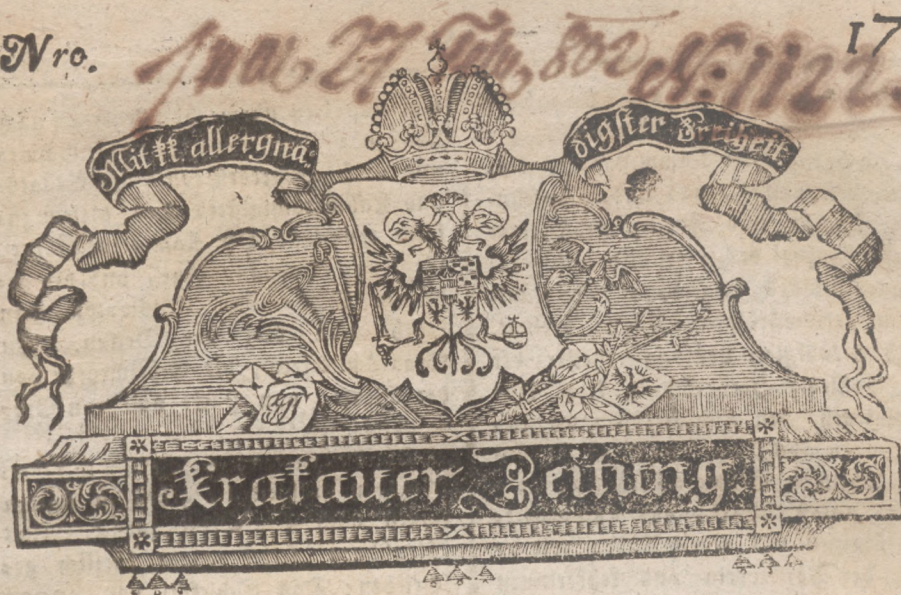 Nro. 17
27 802 N: 1122
Mit kk allergnä-
digster Freiheit
Krakauer Zeitung.